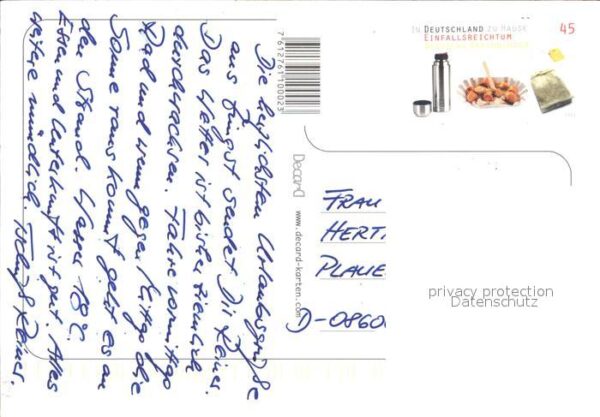 Die herzlichsten Urlaubsgrüße
aus Zingst sendet Dir Reiner.
Das Wetter ist bisher ziemlich
durchwachsen. Fahre vormittags
Rad und wenn gegen Mittag die
Sonne rauskommt geht es an
den Strand. Wasser 18°C.
Essen und Unterkunft ist gut. Alles
weitere mündlich. Tschüß Reiner.
7612761100023
Decard
www.decard-karten.com
IN DEUTSCHLAND ZU HAUSE
EINFALLSREICHTUM
45
FRAU
HERT
PLAUE
D-0860
privacy protection
Datenschutz